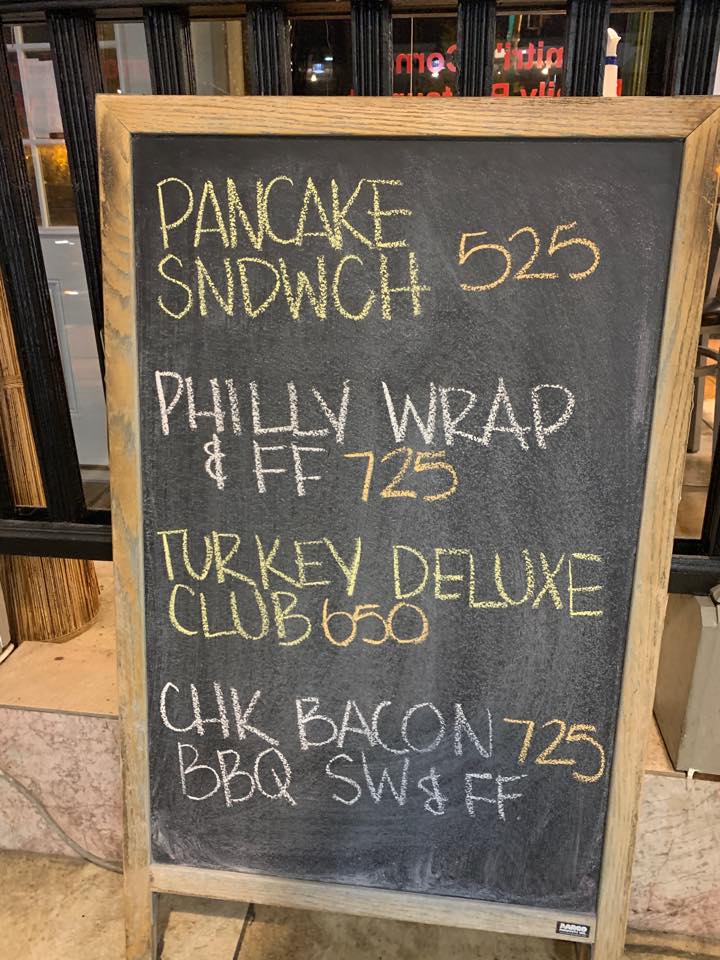 PANCAKE
SNDWCH 525
PHILLY WRAP
& FF 725
TURKEY DELUXE
CLUB 650
CHK BACON 725
BBQ SW & FF
AARCO